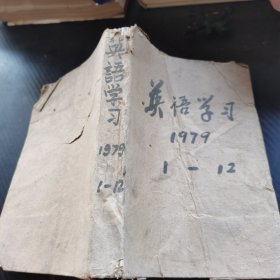 英語学习
1979
1-12
英语学习
1979
1 - 12